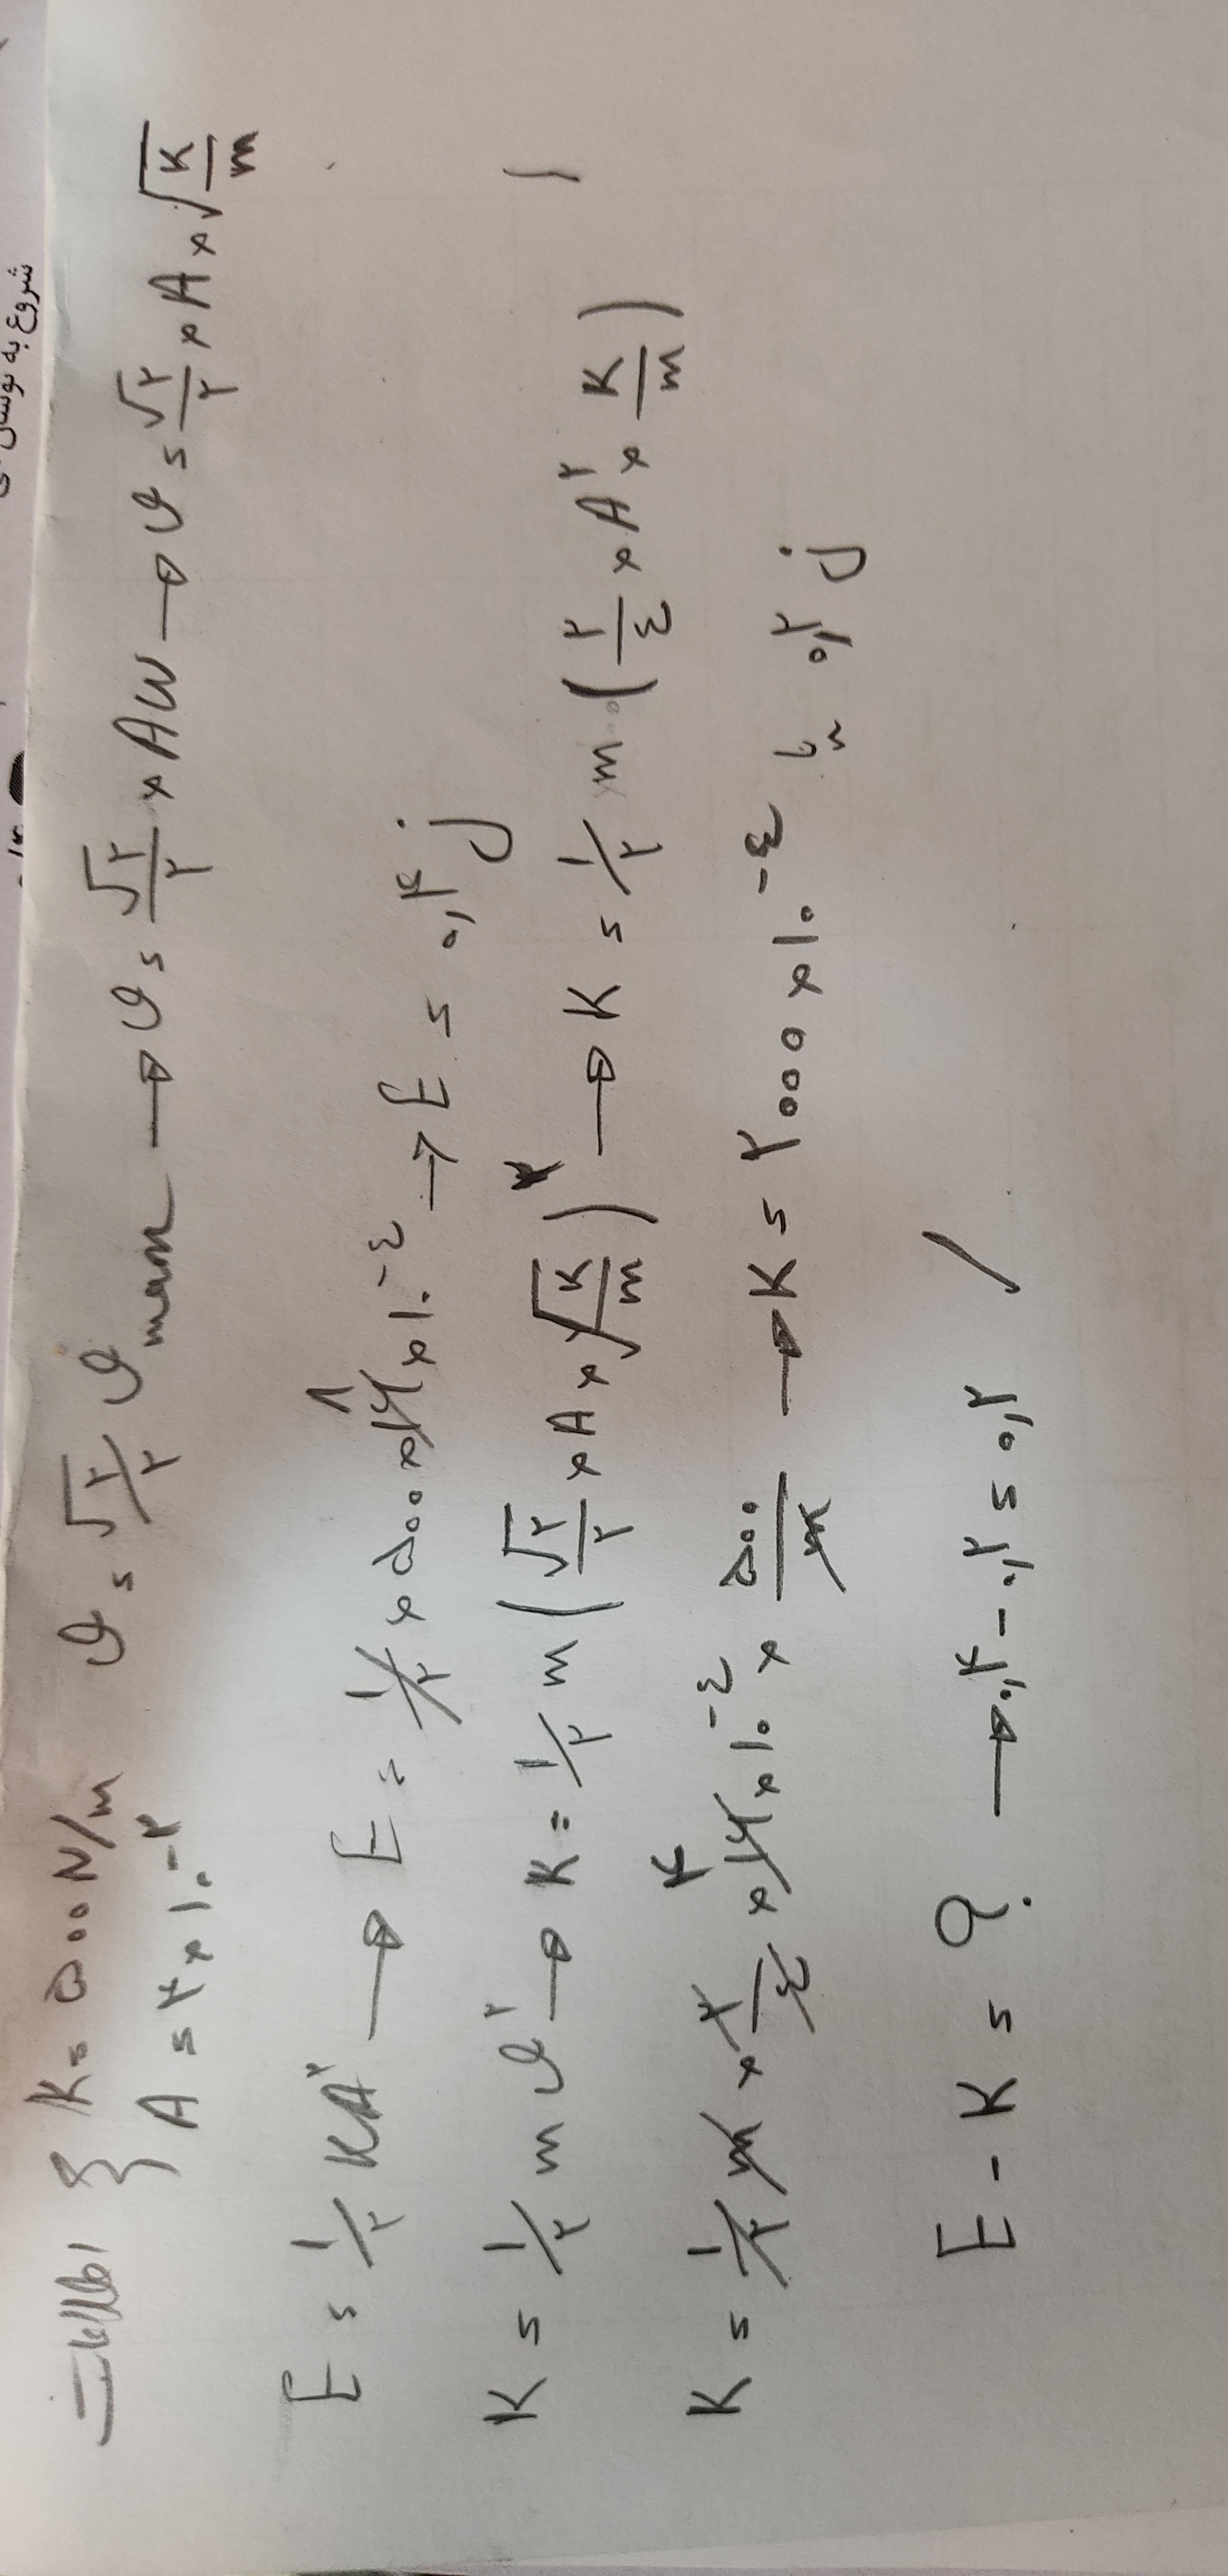 شروع به نوسان
اطلاعات { K = ۵۰۰ N/m   v = √۲/۲ v max → v = √۲/۲ × Aω → v = √۲/۲ × A × √(K/m)
A = ۴ × ۱۰^-۲
E = ۱/۲ KA^۲ → E = ۱/۲ × ۵۰۰ × ۱۶ × ۱۰^-۴ → E = ۰,۴ j
۸
K = ۱/۲ m v^۲ → K = ۱/۲ m (√۲/۲ × A × √(K/m))^۲ → K = ۱/۲ m (۲/۴ × A^۲ × K/m)
K = ۱/۲ m × ۲/۴ × ۱۶ × ۱۰^-۴ × ۵۰۰/m → K = ۲۰۰۰ × ۱۰^-۴ ۰,۲ j
۴
E - K = ? → ۰,۴ - ۰,۲ = ۰,۲